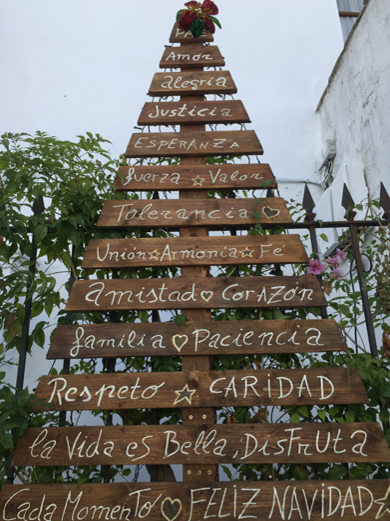 Amor
alegria
Justicia
ESPERANZA
fuerza Valor
Tolerancia
Unión Armonia Fe
amistad CORAZÓN
familia Paciencia
Respeto CARIDAD
la Vida es Bella, DisfRuta
Cada Momento FELIZ NAVIDAD